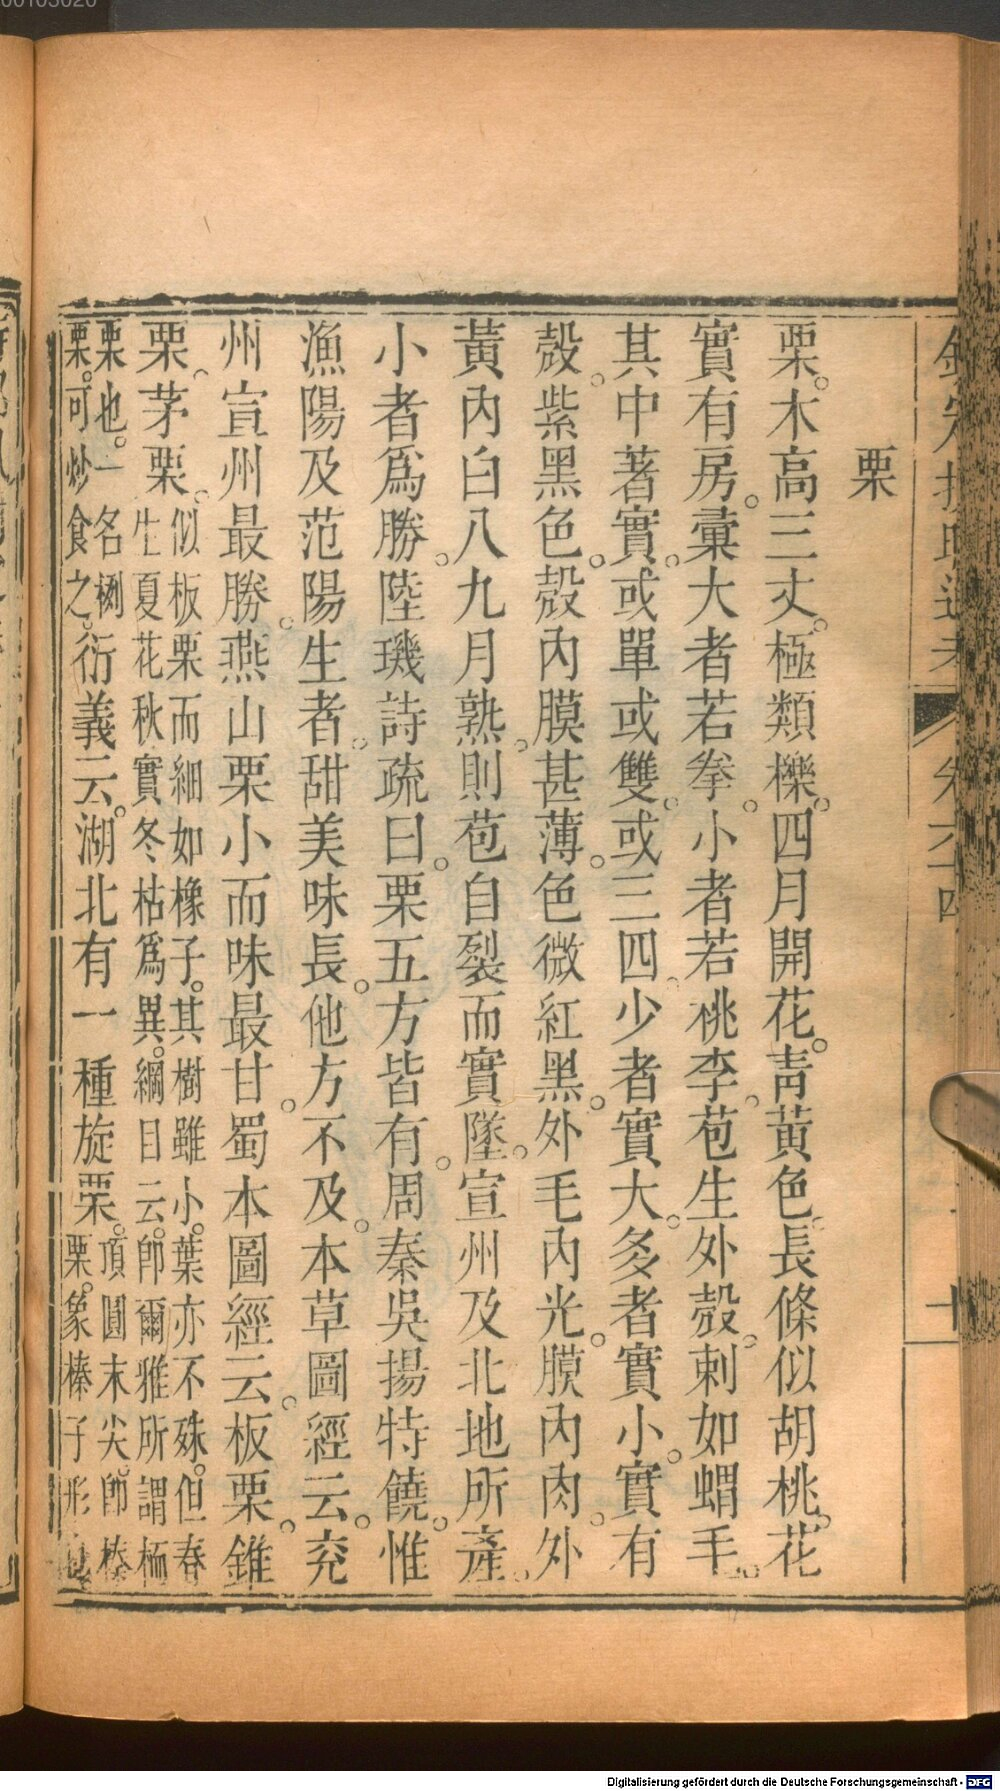 栗
栗。木高三丈。極類櫟。四月開花。靑黃色。長條似胡桃花。
實有房。彙大者若拳。小者若桃李。苞生外殼。刺如蝟毛。
其中著實。或單或雙。或三四。少者實大。多者實小。實有
殼。紫黑色。殼內膜甚薄。色微紅黑。外毛內光。膜內肉。外
黃內白八九月熟。則苞自裂而實墜。宣州及北地所產。
小者爲勝。陸璣詩疏曰。栗五方皆有。周秦吳揚特饒。惟
漁陽及范陽生者。甜美味長。他方不及。本草圖經云。兗
州宣州最勝。燕山栗小而味最甘。蜀本圖經云。板栗。錐
栗。茅栗。似板栗而細如橡子。其樹雖小。葉亦不殊。但春
生夏花秋實冬枯爲異。綱目云。卽爾雅所謂栭
栗也。一名栵
栗。可炒食之。衍義云。湖北有一種旋栗。頂圓末尖。卽榛
栗。象榛子形
欽定授時通考
卷六十四
十
Digitalisierung gefördert durch die Deutsche Forschungsgemeinschaft - DFG